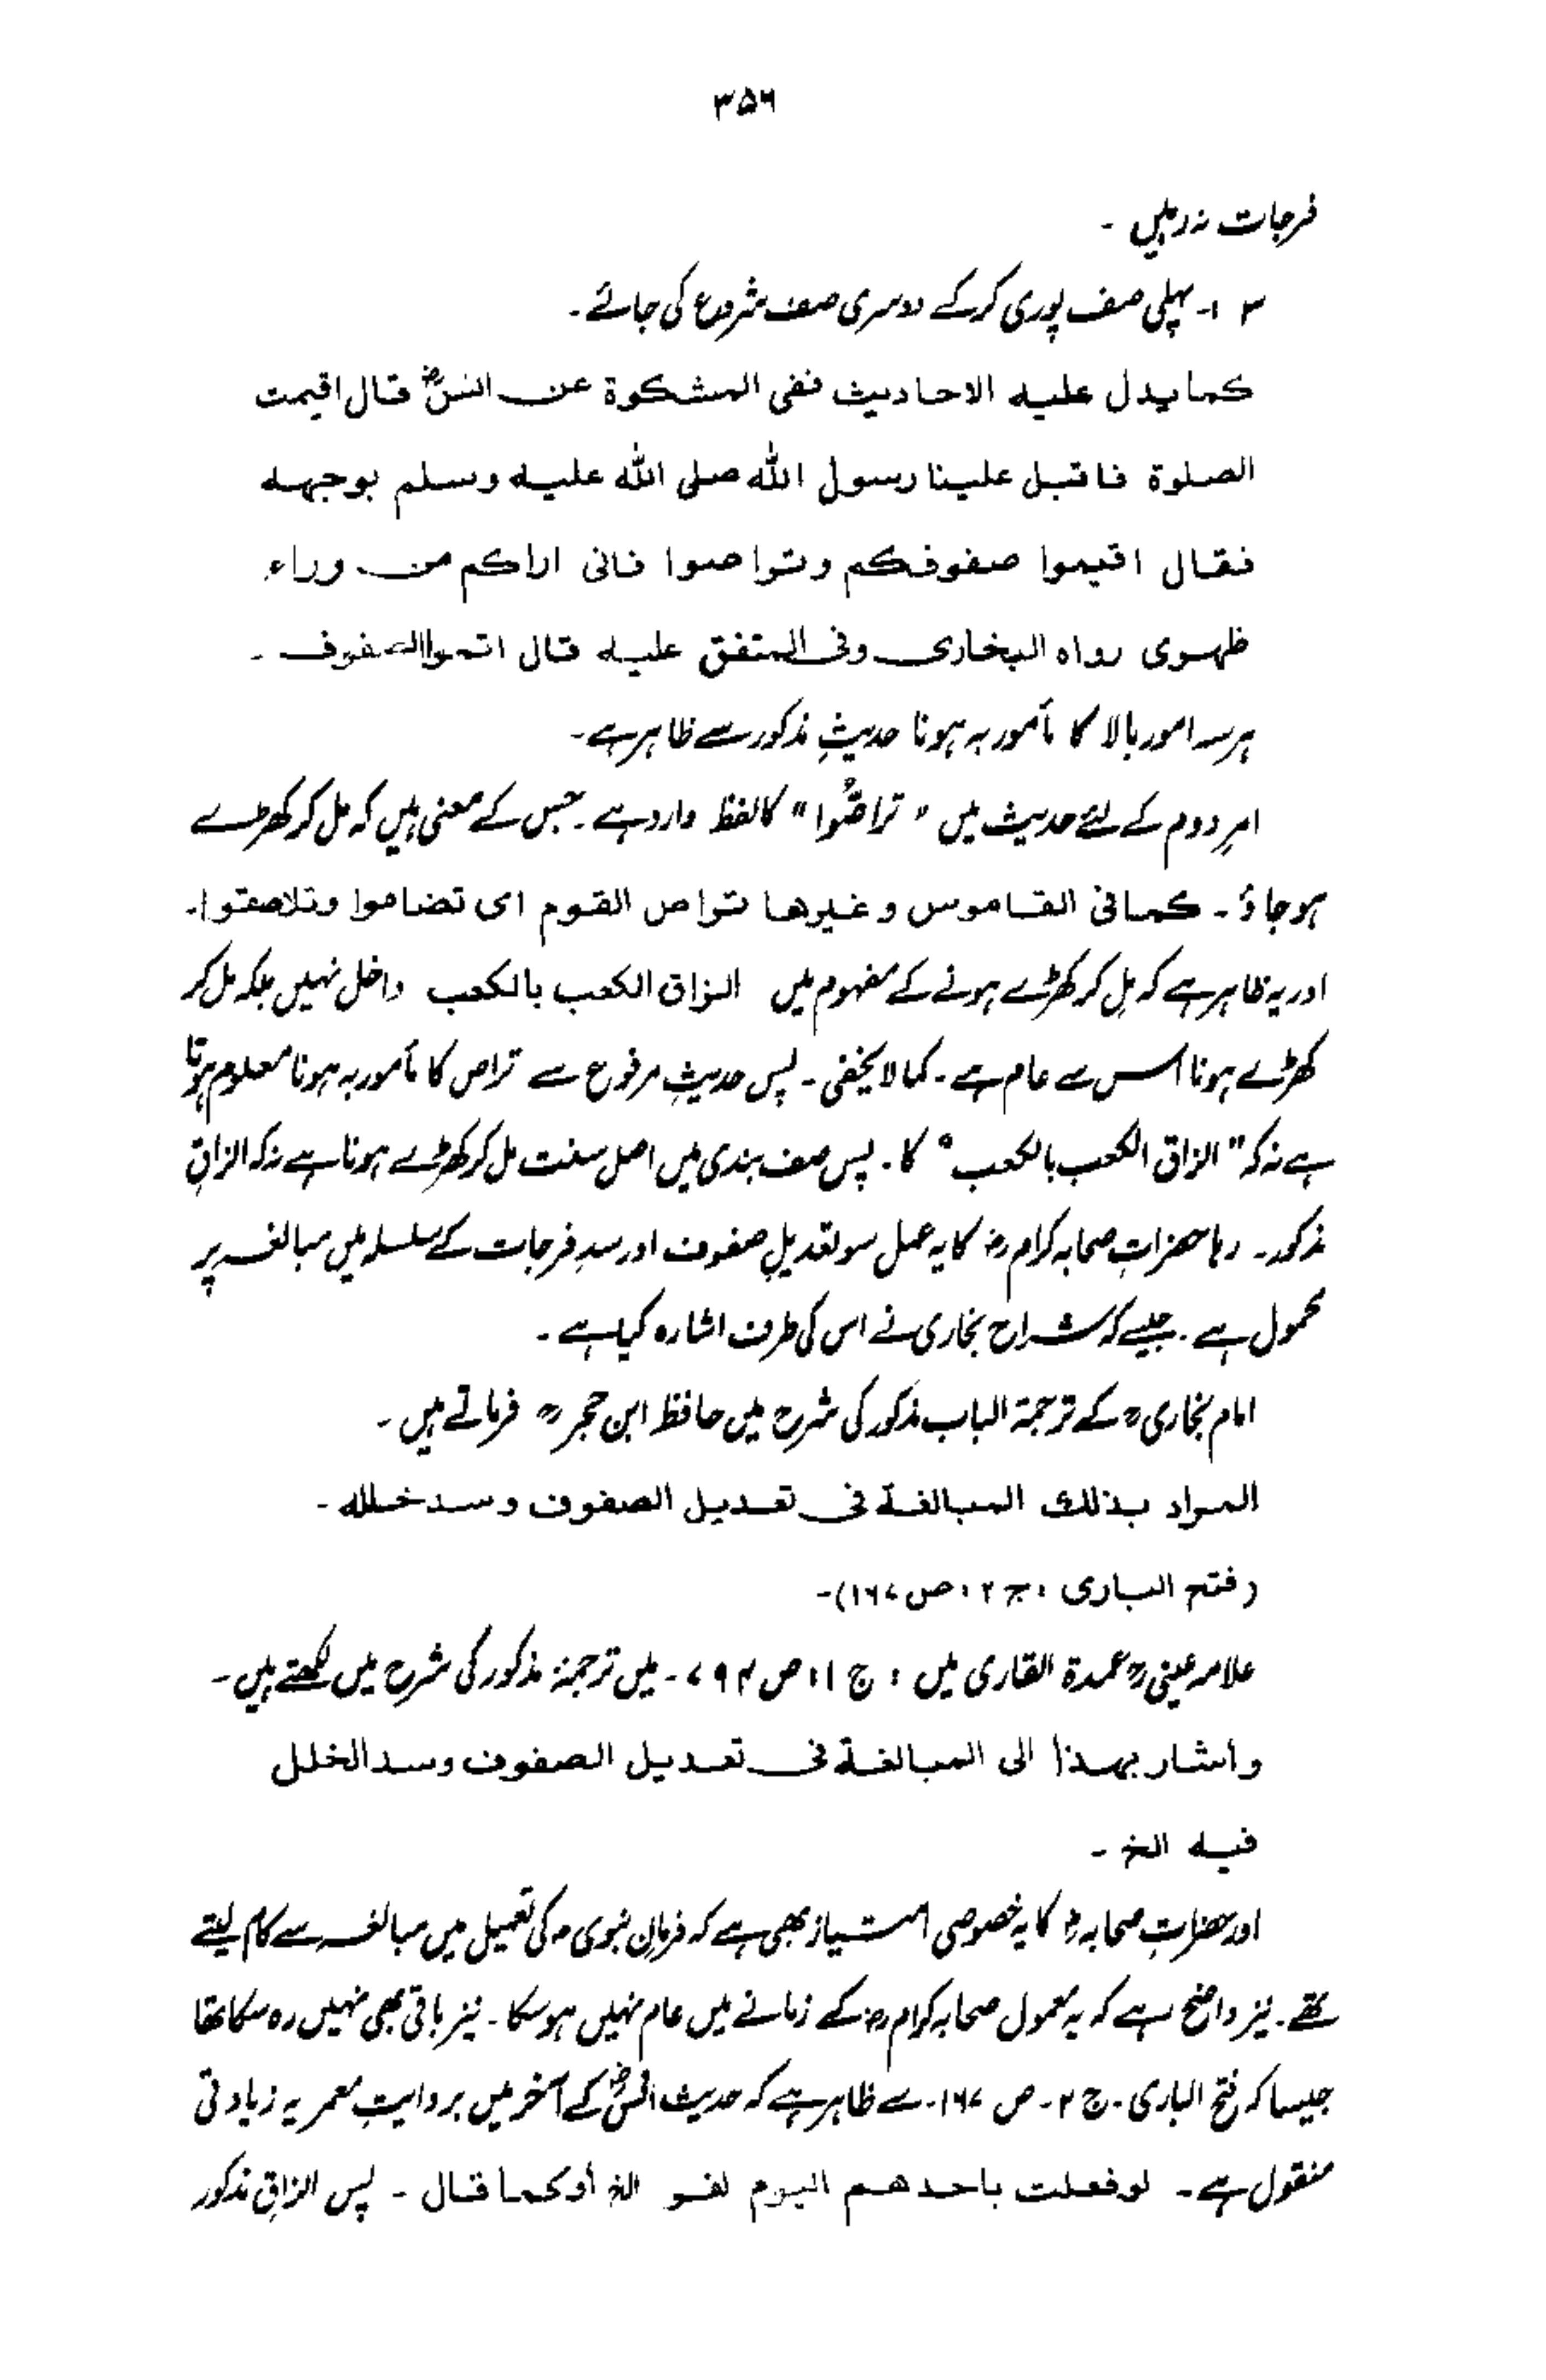 ۳۵۶
فرجات نہ رہیں ۔
۳ ۔ پہلی صف پوری کرکے دوسری صف شروع کی جائے ۔
کما یدل علیہ الاحادیث ففی المشکوۃ عن انسؓ قال اقیمت
الصلوۃ فاقبل علینا رسول اللہ صلی اللہ علیہ وسلم بوجهہ
فقال اقیموا صفوفکم وتراصوا فانی اراکم من وراء
ظهری رواہ البخاری وفی المتفق علیہ قال اتموا الصفوف ۔
ہر سہ امور بالا کا مأمور بہ ہونا حدیثِ مذکور سے ظاہر ہے ۔
امرِ دوم کے لئے حدیث میں " تراصُّوا " کا لفظ وارد ہے ۔ جس کے معنی ہیں کہ مل کر کھڑے
ہو جاؤ ۔ کما فی القاموس وغیرها تراص القوم ای تضاموا وتلاصقوا ۔
اور یہ ظاہر ہے کہ مِل کر کھڑے ہونے کے مفہوم میں الزاق الکعب بالکعب داخل نہیں بلکہ مل کر
کھڑے ہونا اس سے عام ہے ۔ کما لا یخفی ۔ پس حدیثِ مرفوع سے تراص کا مأمور بہ ہونا معلوم ہوتا
ہے نہ کہ " الزاق الکعب بالکعب " کا ۔ پس صف بندی میں اصل سنت مل کر کھڑے ہونا ہے نہ کہ الزاقِ
مذکور ۔ رہا حضراتِ صحابہ کرام رضؓ کا یہ عمل سو تعدیلِ صفوف اور سدِ فرجات کے سلسلہ میں مبالغہ پر
محمول ہے ۔ جیسے کہ شراح بخاری نے اس کی طرف اشارہ کیا ہے ۔
امام بخاریؒ کے ترجمۃ الباب مذکور کی شرح میں حافظ ابن حجرؒ فرماتے ہیں ۔
المراد بذلک المبالغۃ فی تعدیل الصفوف وسد خللہ ۔
( فتح الباری ، ج ۲ ، ص ۱۶۷ ) ۔
علامہ عینیؒ عمدۃ القاری میں ، ج ۱ ، ص ۷۹۴ ۔ میں ترجمۂ مذکور کی شرح میں لکھتے ہیں ۔
واشار بهذا الی المبالغۃ فی تعدیل الصفوف وسد الخلل
فیہ الخ ۔
اور حضراتِ صحابہؓ کا یہ خصوصی امتیاز بھی ہے کہ فرمانِ نبویؐ کی تعمیل میں مبالغہ سے کام لیتے
تھے ۔ نیز واضح ہے کہ یہ معمول صحابہ کرامؓ کے زمانے میں عام نہیں ہوسکا ۔ نیز باقی بھی نہیں رہ سکا تھا
جیسا کہ فتح الباری ۔ ج ۲ ۔ ص ۱۶۷ ۔ سے ظاہر ہے کہ حدیث انسؓ کے آخر میں بروایتِ معمر یہ زیادتی
منقول ہے ۔ لو فعلت باحدهم الیوم لنفر الخ أو کما قال ۔ پس الزاقِ مذکور